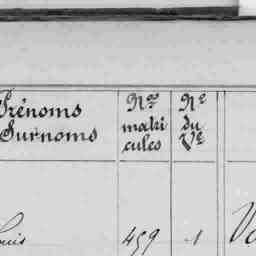 Prénoms
Surnoms
Nos
matri
cules
No
du
Vé
ouis
459
1